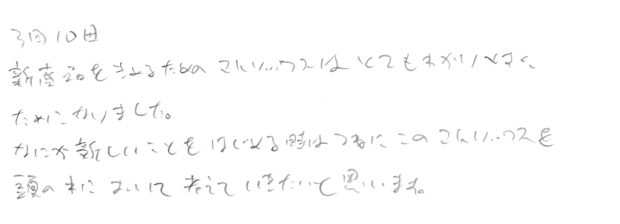 3回10日
新産品を考えるためのマトリックスはとてもわかりやすく、
ためになりました。
なにか新しいことをはじめる時はつねにこのマトリックスを
頭の中において考えていきたいと思います。